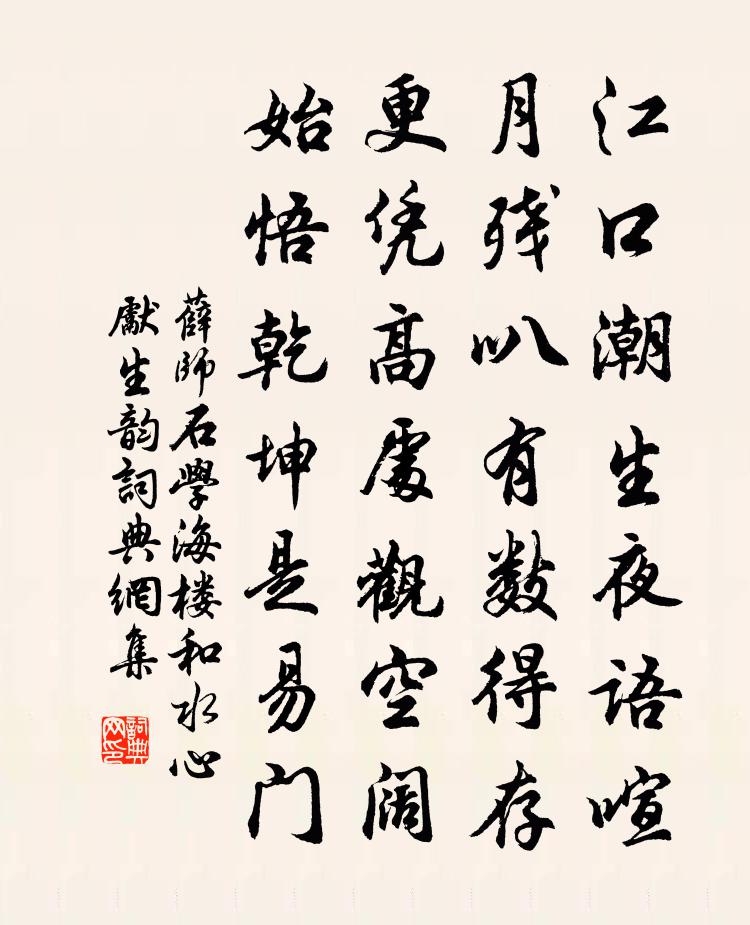 江口潮生夜语喧
月残叭有数得存
更凭高處觀空阔
始悟乾坤是易门
薛師石學海楼和水心
獻生韵詞典網集
詞典網印